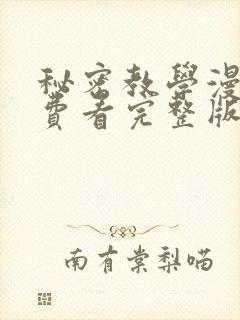 秘密教學漫
費看完整版
南有棠梨喵